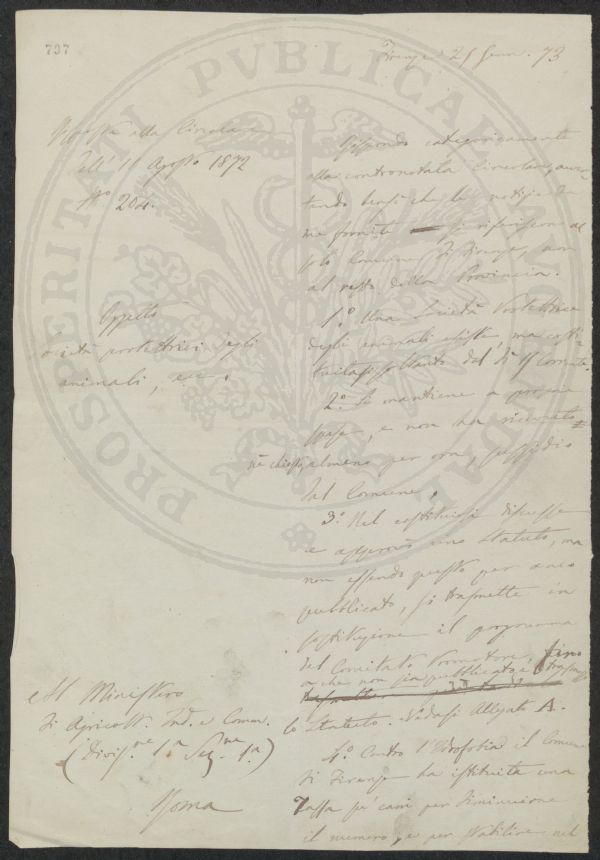 797
Firenze 25 Genn. 73
Risposta alla Circolare
dell' 11 Agosto 1872
N° 204.
Oggetto
Società protettrici degli
animali, ecc.
Rispondo categoricamente
alla contronotata Circolare, avver
tendo bensì che le notizie da
me fornite si riferiscono al
solo Comune di Firenze, non
al resto della Provincia.
1.° Una Società Protettrice
degli animali esiste, ma costi
tuitasi soltanto dal dì 19 corrente.
2.° Si mantiene a proprie
spese, e non ha ricevuto
nè chiesto, almeno per ora, sussidio
dal Comune.
3.° Nel costituirsi discusse
e approvò uno Statuto, ma
non essendo questo per anco
pubblicato, si trasmette in
sostituzione il programma
del Comitato Promotore, fino
a che non sia pubblicato e
lo Statuto. Vedasi Allegato A.
4.° Contro l'Idrofobia il Comune
di Firenze ha istituita una
Tassa su' cani per diminuirne
il numero, e per stabilire nel
Al Ministero
di Agricolt. Ind. e Comm.
(Divis.ne 1.a Sez.ne 1.a)
Roma
PROSPERITATI PVBLICAE